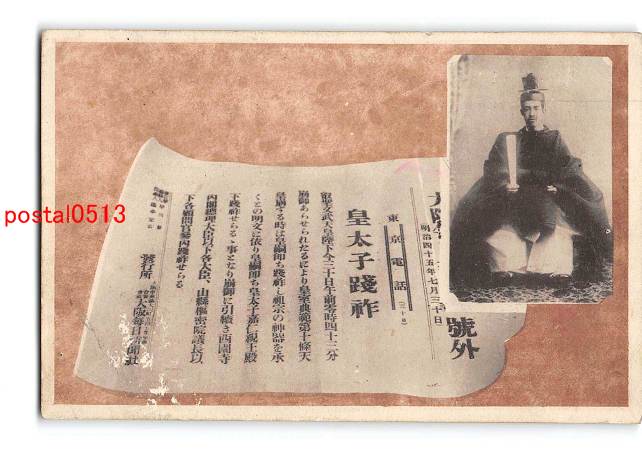 號外
明治四十五年七月三十日
東京電話(三十日)
皇太子踐祚
叡聖文武天皇陛下今三十日午前零時四十三分
崩御あらせられたるにより皇室典範第十條天
皇崩ずる時は皇嗣即ち踐祚し祖宗の神器を承
くとの明文に依り皇嗣即ち皇太子嘉仁親王殿
下踐祚せらるゝ事となり崩御に引續き西園寺
內閣總理大臣以下各大臣、山縣樞密院議長以
下各顧問官參內踐祚せらる
發行所
大阪每日新聞社
postal0513